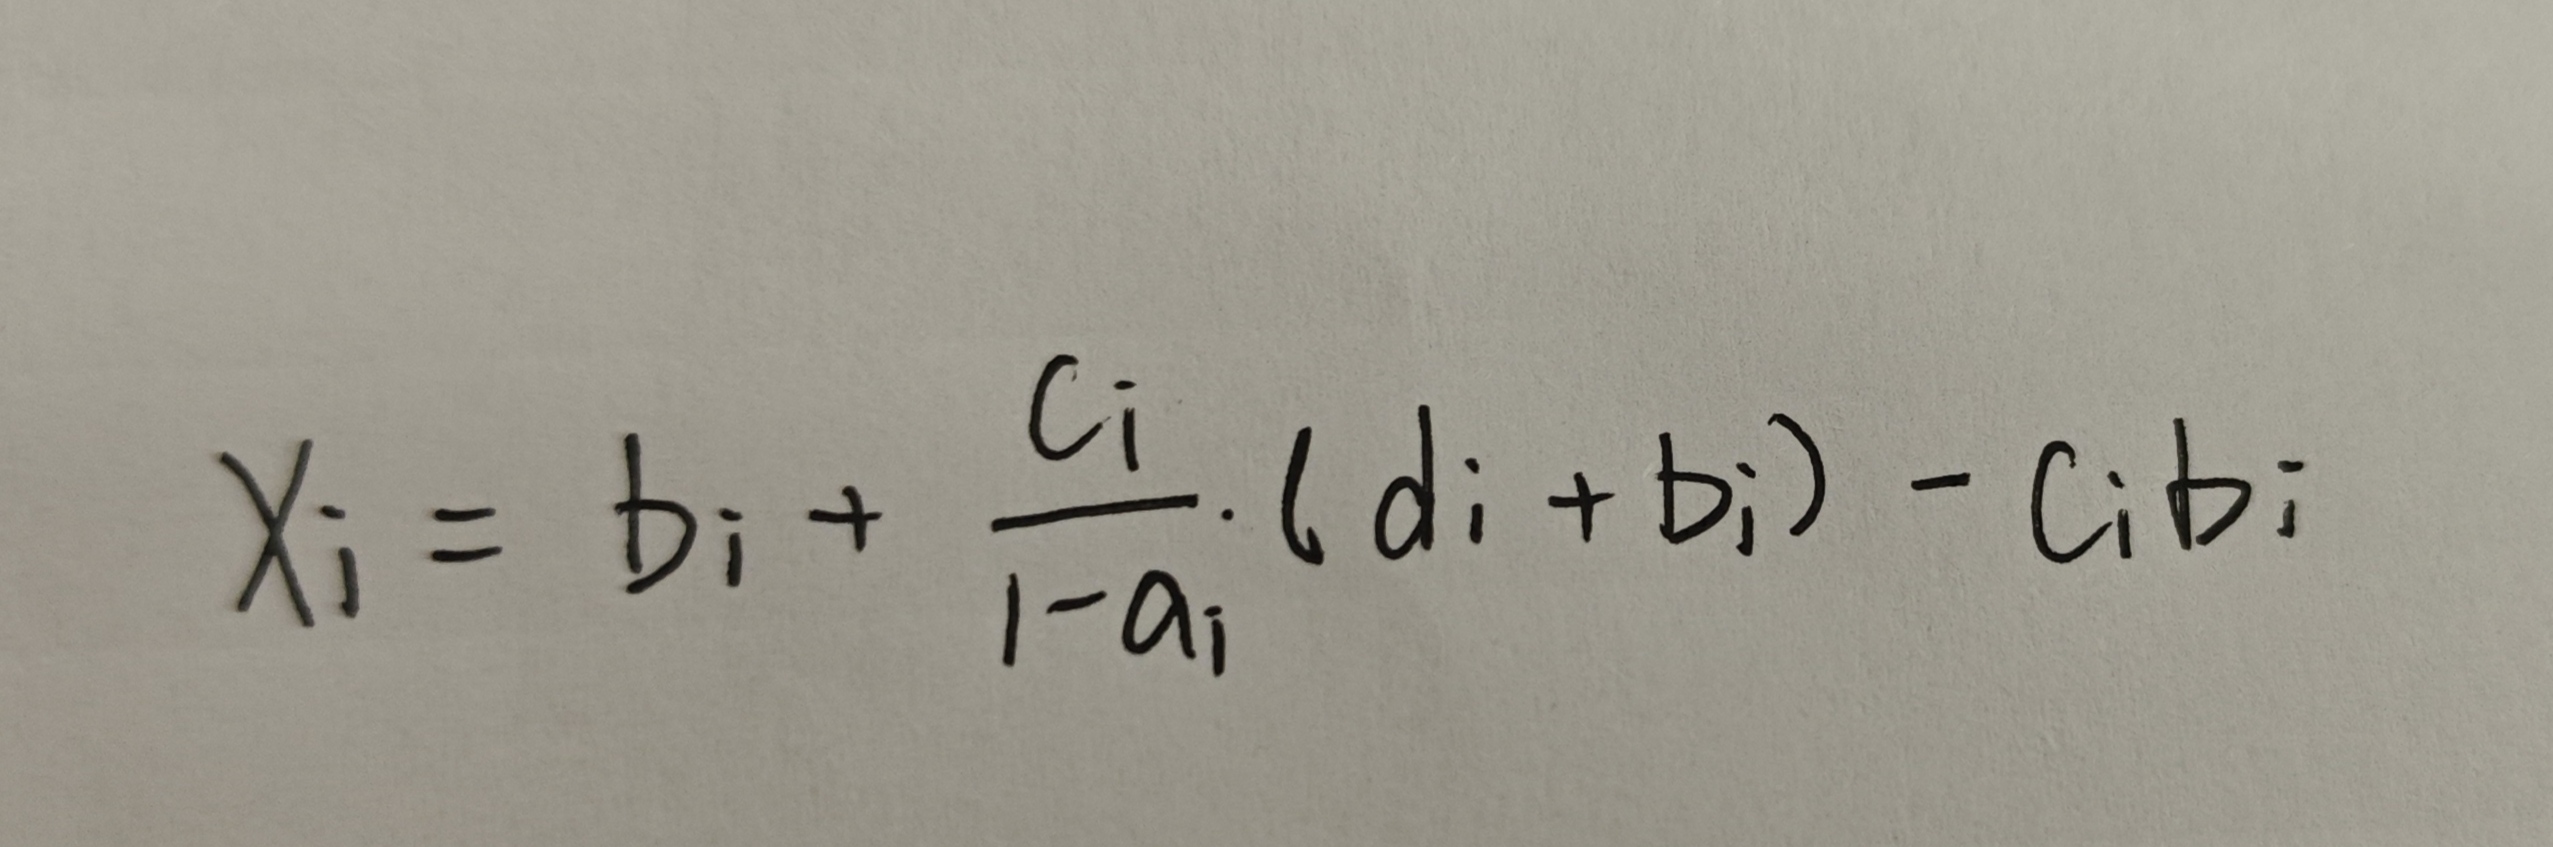 $X_i = b_i + \frac{c_i}{1-a_i} \cdot (d_i + b_i) - c_i b_i$